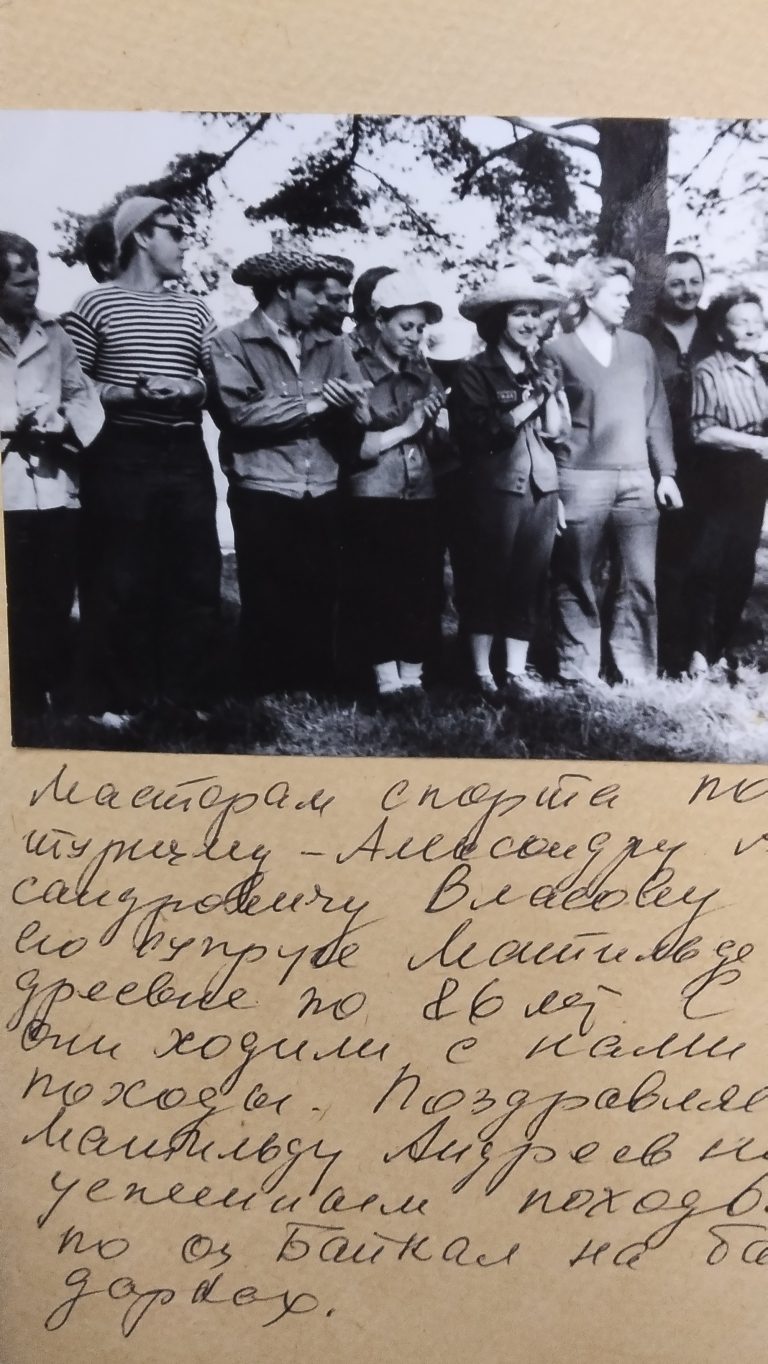 Мастерам спорта по
туризму - Александру
сандровичу Власову
его супруге Матильде
дреевне по 86 лет С
они ходили с нами
походы. Поздравляе
Матильду Андреевн
успешным походо
по оз Байкал на ба
дарках.